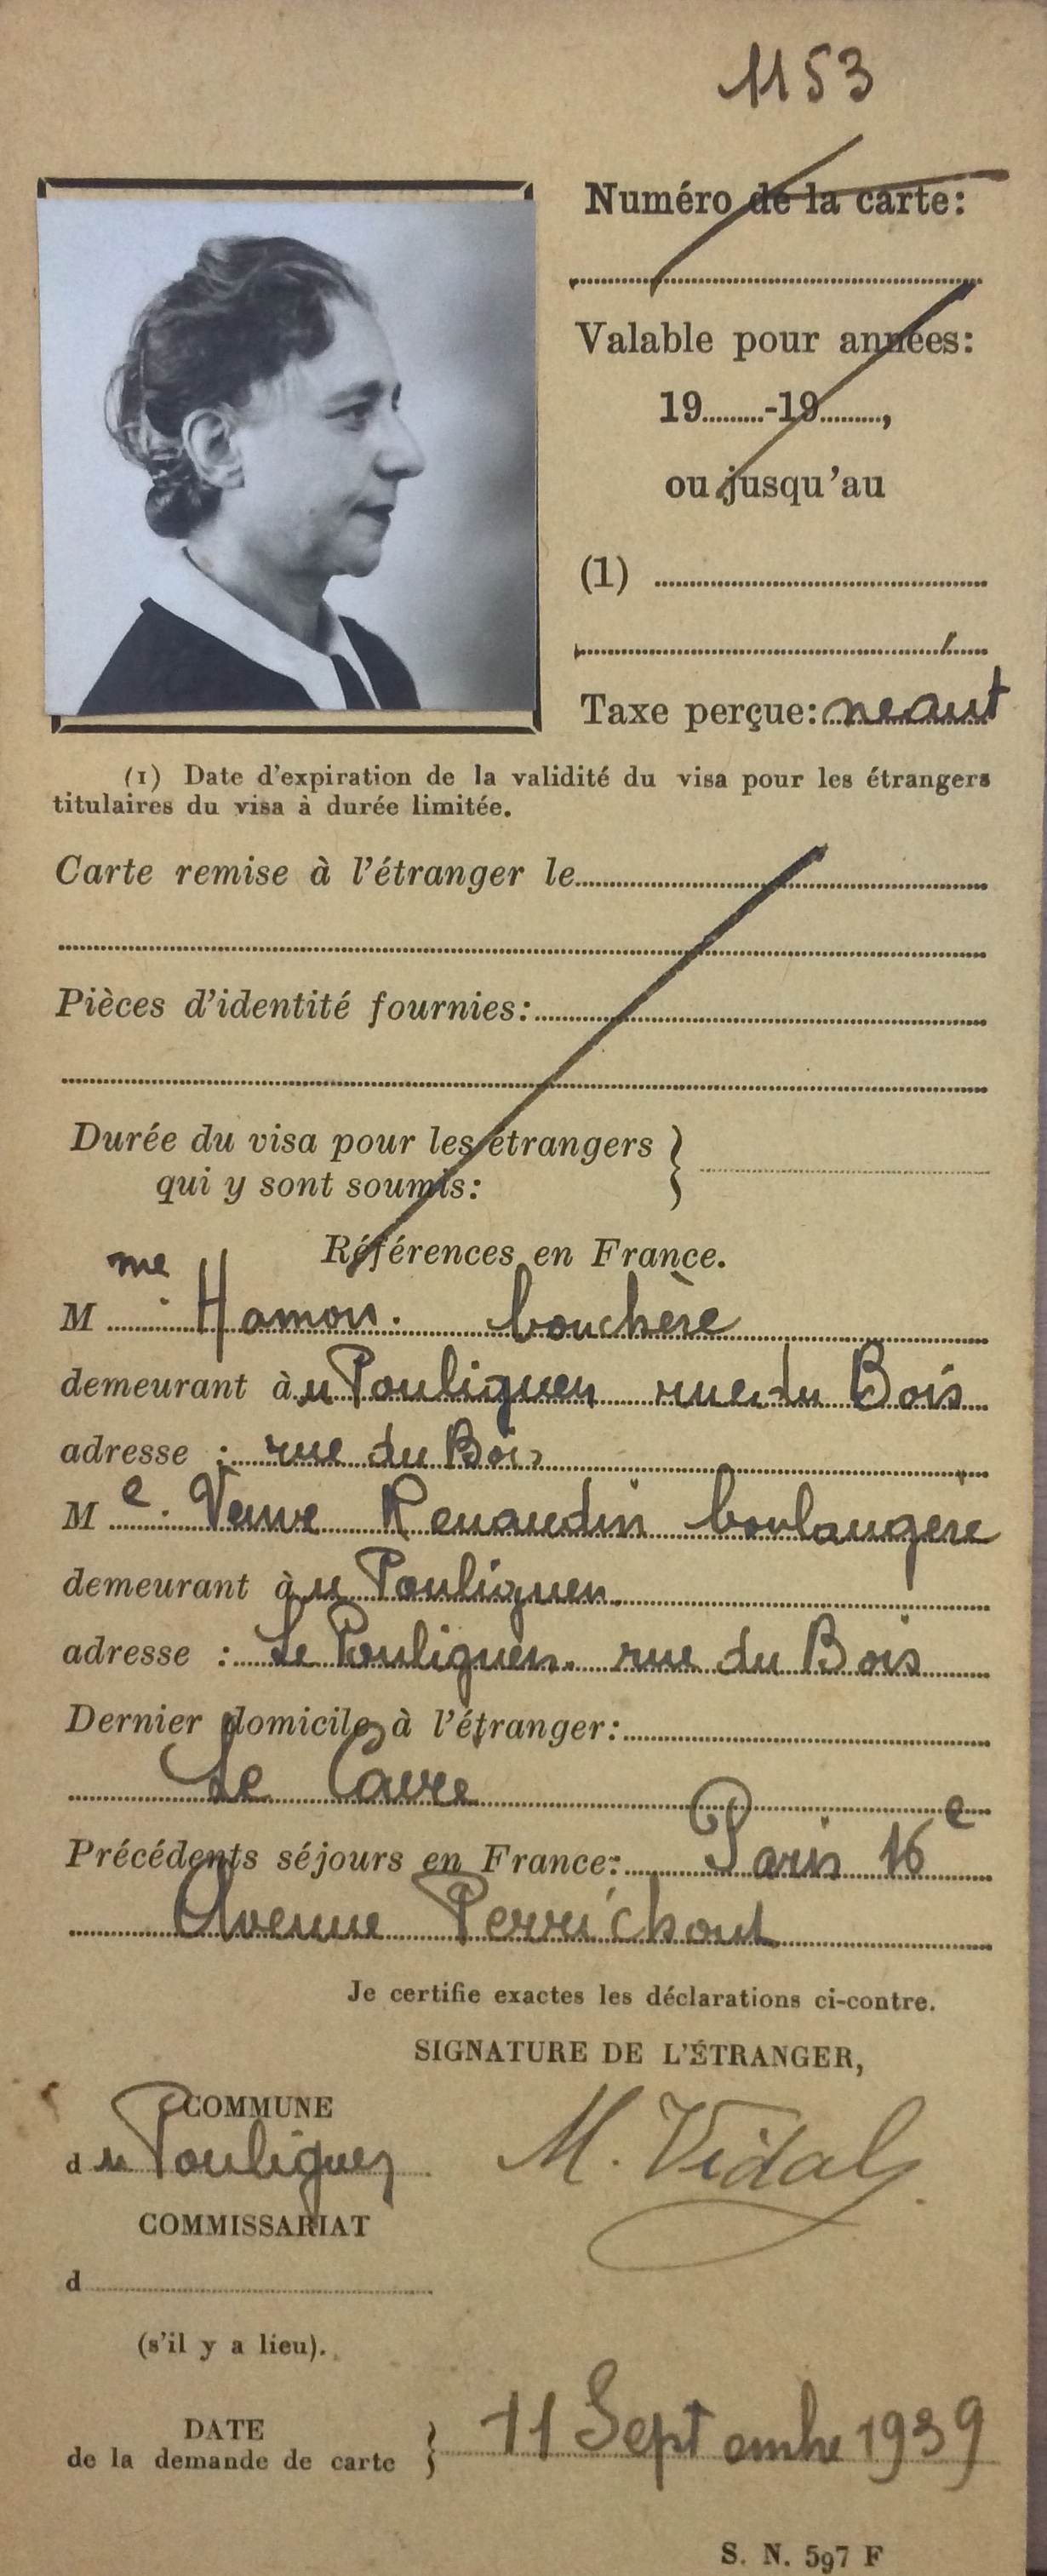 1153
Numéro de la carte:
Valable pour années:
19........-19........,
ou jusqu'au
(1)
Taxe perçue: neant
(1) Date d'expiration de la validité du visa pour les étrangers
titulaires du visa à durée limitée.
Carte remise à l'étranger le
Pièces d'identité fournies:
Durée du visa pour les étrangers }
qui y sont soumis:
Références en France.
Mme Hamon. bouchère
demeurant àu Pouliguen rue du Bois
adresse : rue du Bois
Me. Veuve Renaudin boulangere
demeurant àu Pouliguen
adresse : Le Pouliguen. rue du Bois
Dernier domicile à l'étranger:
Le Caire
Précédents séjours en France: Paris 16e
Avenue Perrichont
Je certifie exactes les déclarations ci-contre.
SIGNATURE DE L'ÉTRANGER,
M. Vidal
COMMUNE
du Pouliguen
COMMISSARIAT
d
(s'il y a lieu).
DATE
de la demande de carte } 11 Septembre 1939
S. N. 597 F